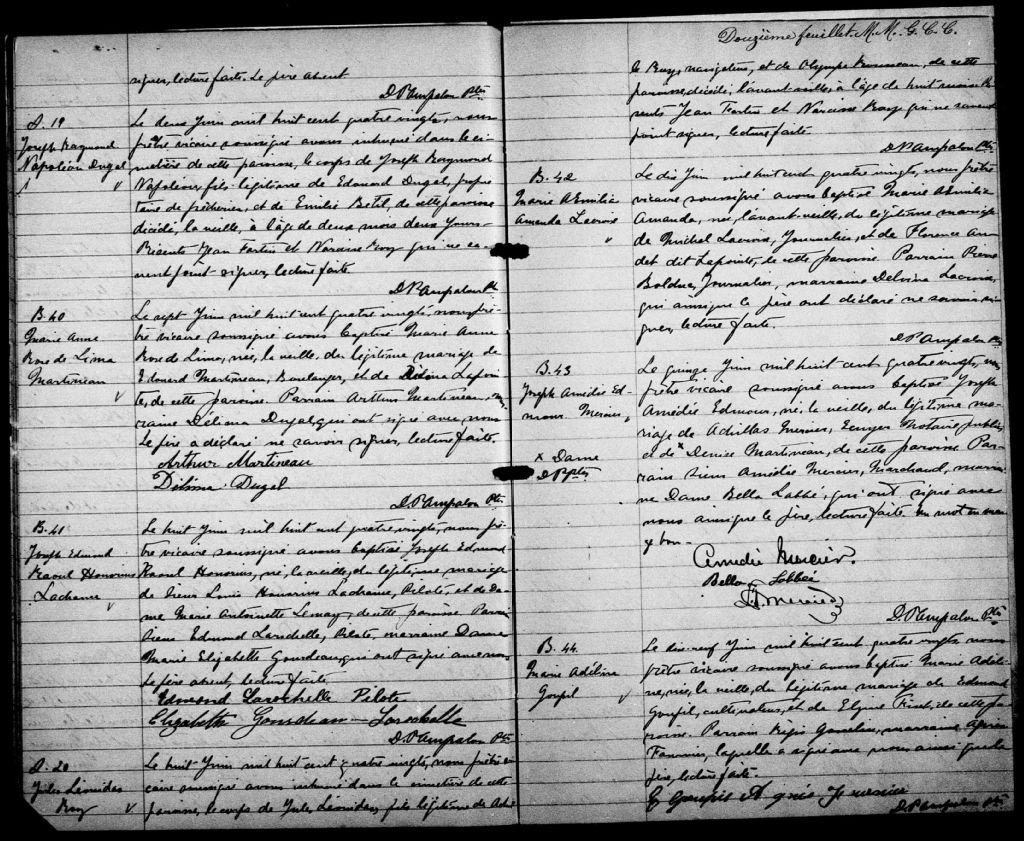 signer, lecture faite. Le père absent
D. Pampalon Ptre
S. 19
Joseph Raymond
Napoléon Dugal
Le deux Juin mil huit cent quatre vingts, nous
prêtre vicaire soussigné avons inhumé dans le ci-
metière de cette paroisse, le corps de Joseph Raymond
Napoléon, fils légitime de Edouard Dugal, proprié-
taire de pêcheries, et de Emilie de cette paroisse
décédé, la veille, à l'âge de deux mois deux jours.
Présents Jean Fortin et Narcisse Roy qui ne sa-
vent point signer, lecture faite.
D. Pampalon Pt
B. 40
Marie Anne
Rose de Lima
Martineau
Le sept Juin mil huit cent quatre vingts, nous prê-
tre vicaire soussigné avons baptisé Marie Anne
Rose de Lima, née, la veille, du légitime mariage de
Edouard Martineau, Boulanger, et de Délima Lapoin-
te, de cette paroisse. Parrain Arthur Martineau, mar-
raine Délima Dugal, qui ont signé avec nous.
Le père a déclaré ne savoir signer, lecture faite.
Arthur Martineau
Délima Dugal
D. Pampalon Ptr.
B. 41
Joseph Edmond
Raoul Honorius
Lachance
Le huit Juin mil huit cent quatre vingts, nous prê-
tre vicaire soussigné avons baptisé Joseph Edmond
Raoul Honorius, né, la veille, du légitime mariage
de Sieur Louis Honorius Lachance, Pilote, et de Da-
me Marie Antoinette Lemay, de cette paroisse. Parrain
Sieur Edmond Larochelle, Pilote, marraine Dame
Marie Elizabeth Gourdeau, qui ont signé avec nous
Le père absent, lecture faite
Edmond Larochelle Pilote
Elizabeth Gourdeau Larochelle
D. Pampalon Ptr
S. 20
Jules Léonidas
Roy
Le huit Juin mil huit cent quatre vingts, nous prêtre vi-
caire soussigné avons inhumé dans le cimetière de cette
paroisse, le corps de Jules Léonidas, fils légitime de
Douzième feuillet. M. M. G. C. C.
le Roy, navigateur, et de Olympe de cette
paroisse, décédé, l'avant veille, à l'âge de huit mois. Pré-
sents Jean Fortin et Narcisse Roy qui ne savent
point signer, lecture faite.
D. Pampalon Ptr.
B. 42
Marie AEmilia
Amanda Lacroix
Le dix Juin mil huit cent quatre vingts, nous prêtre
vicaire soussigné avons baptisé Marie AEmilia
Amanda, née, l'avant-veille, du légitime mariage
de Michel Lacroix, Journalier, et de Florence Au-
det dit Lapointe, de cette paroisse. Parrain Pierre
Bolduc, Journalier, marraine Delvina Lacroix,
qui ainsi que le père ont déclaré ne savoir si-
gner, lecture faite.
D. Pampalon Ptr
B. 43
Joseph Amédée Ed-
mour Mercier
x Dame
D. P. ptre
Le quinze Juin mil huit cent quatre vingts, nous
prêtre vicaire soussigné avons baptisé Joseph
Amédée Edmour, né, la veille, du légitime ma-
riage de Achillas Mercier, Ecuyer Notaire public,
et de x Denise Martineau, de cette paroisse. Par-
rain Sieur Amédée Mercier, Marchand, marrai-
ne Dame Bella Labbé, qui ont signé avec
nous ainsi que le père, lecture faite. Un mot en mar-
ge bon.
Amédée Mercier
Bella Labbée
A. Mercier
D. Pampalon Ptr
B. 44
Marie Adéline
Goupil
Le dix-neuf Juin mil huit cent quatre vingts nous
prêtre vicaire soussigné avons baptisé Marie Adéli-
ne, née, la veille, du légitime mariage de Edmond
Goupil, cultivateur, et de de cette pa-
roisse. Parrain Régis Gosselin, marraine Agnès
Fournier, laquelle a signé avec nous ainsi que le
père, lecture faite.
E Goupil Agnès Fournier
D. Pampalon Ptr.